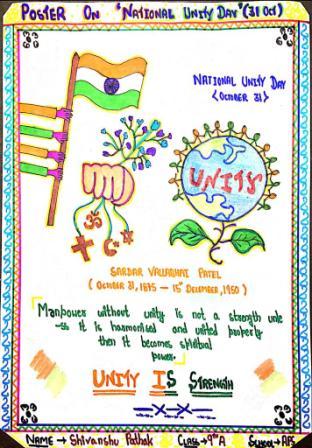 POSTER ON 'NATIONAL UNITY DAY' (31 Oct)
NATIONAL UNITY DAY
<OCTOBER 31>
UNITY
ॐ
SARDAR VALLABHAI PATEL
( OCTOBER 31, 1875 — 15th DECEMBER, 1950 )
Manpower without unity is not a strength unle
-ss it is harmonised and united properly
then it becomes spiritual
power.
UNITY IS STRENGTH
NAME → Shivanshu Pathak CLASS → 9th A SCHOOL → APS